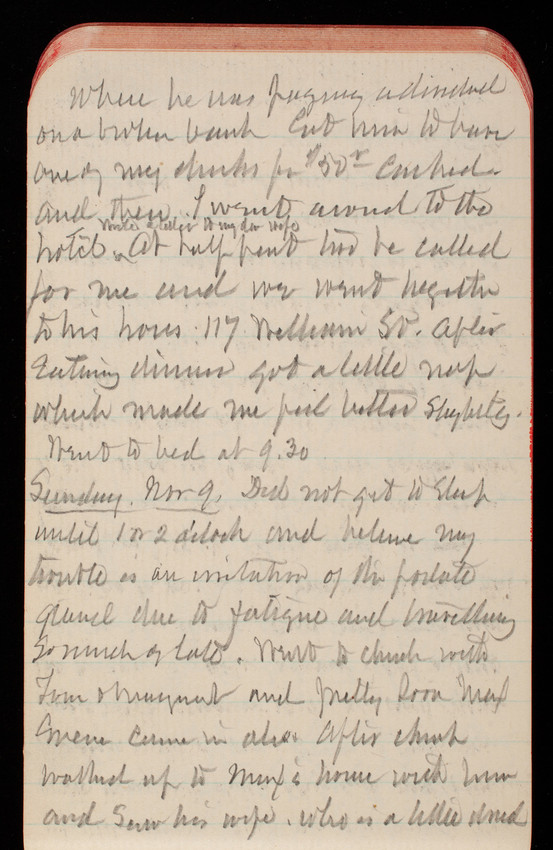 Where he was paying a dividend
on a broken bank. Got him to have
one of my checks for $50 cashed.
and then I went around to the
Wrote a letter to my dear wife
hotel. At half past two he called
for me and we went together
to his house 117 William St. After
Eating dinner got a little nap
which made me feel better slightly.
Went to bed at 9.30
Sunday. Nov 9. Did not get to sleep
until 1 or 2 o'clock and believe my
trouble is an irritation of the prostate
gland due to fatigue and travelling
so much of late. Went to church with
Tom and and pretty soon Max
Greene came in also. After church
walked up to Max's house with him
and saw his wife. who is a little